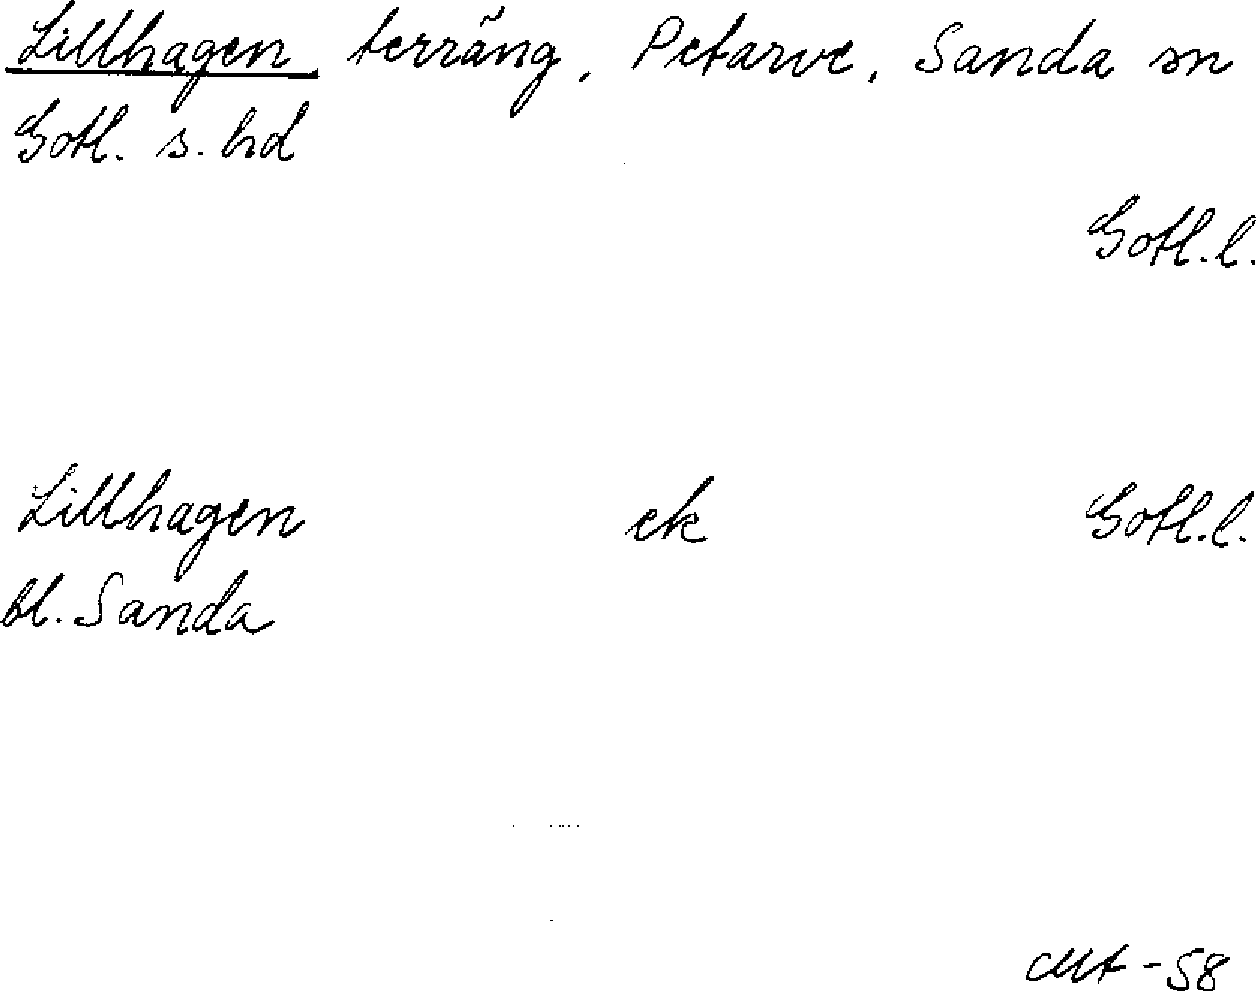 Lillhagen terräng, Petarve, Sanda sn
Gotl. s. hd
Gotl. l.
Lillhagen ek Gotl. l.
bl. Sanda
-58